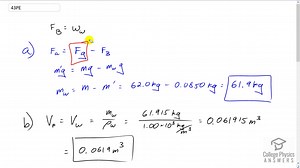 43PE
F_B = w_w
a) F_a = F_g - F_B
m'g = mg - m_w g
m_w = m - m' = 62.0 kg - 0.0850 kg = 61.9 kg
b) V_P = V_w = m_w / ρ_w = 61.915 kg / 1.00·10³ kg/m³ = 0.061915 m³
= 0.0619 m³
College Physics
ANSWERS